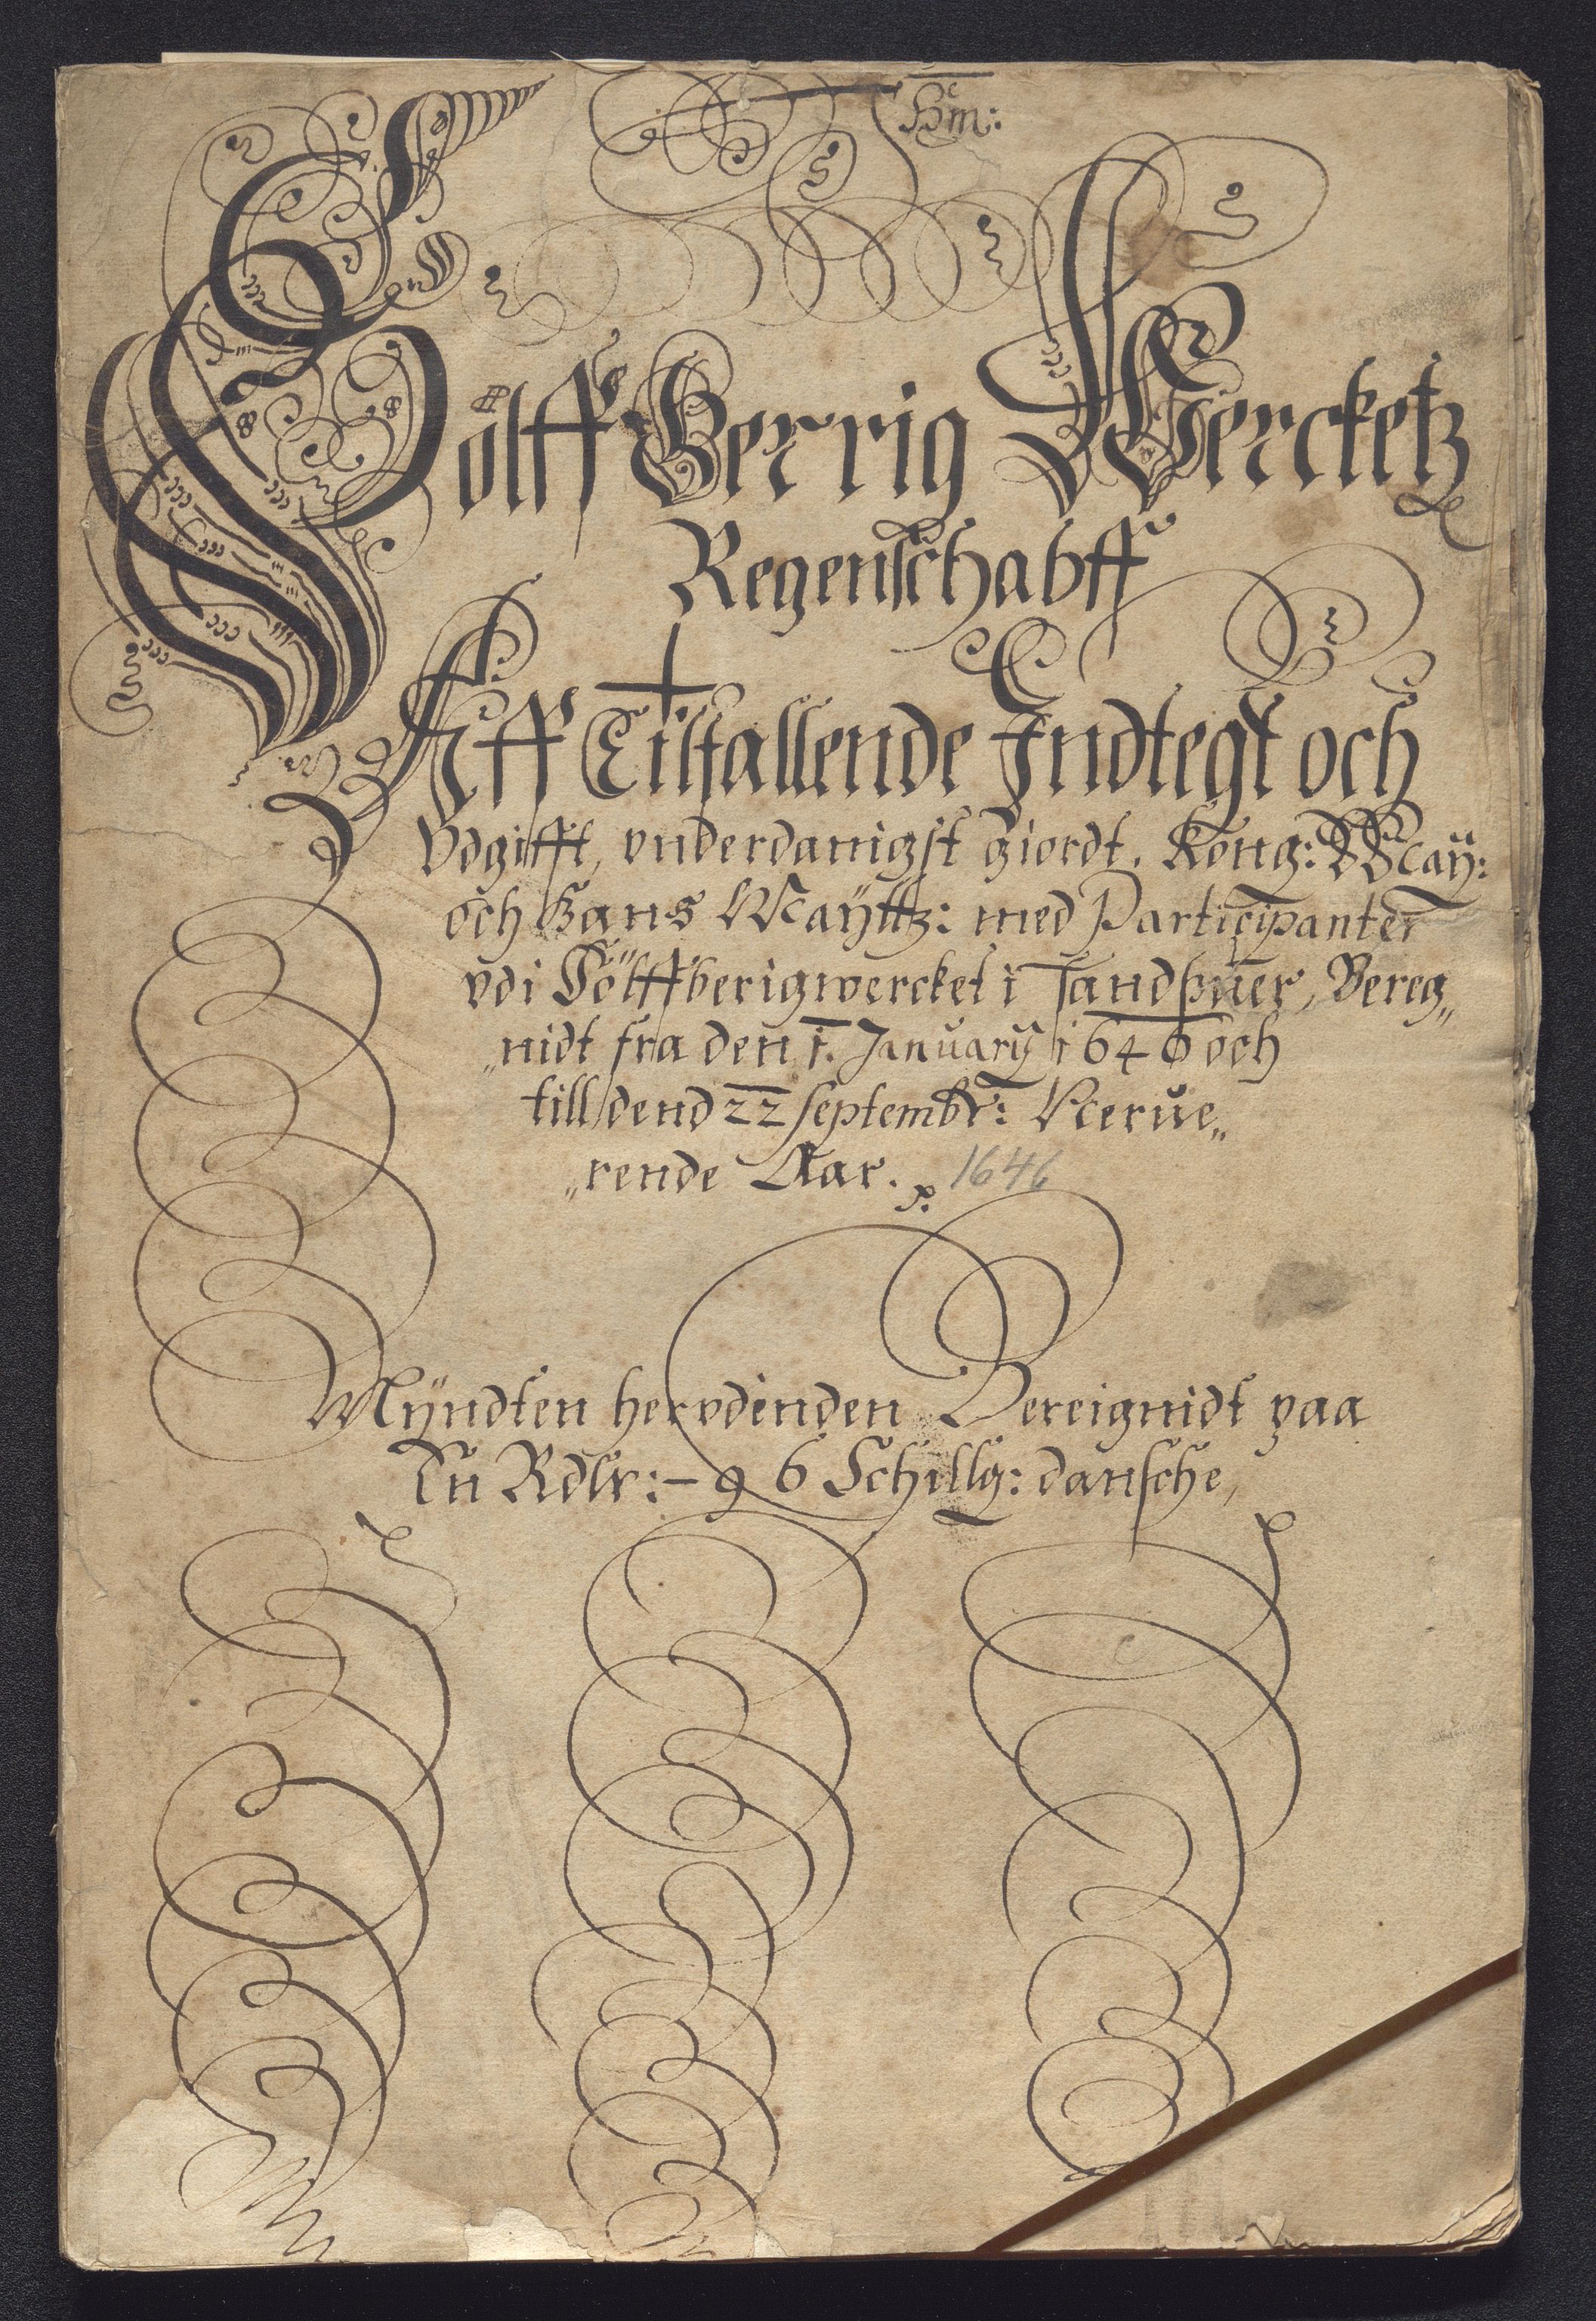 Sölff Berrig Wercketz
Regenschabff
Aff Tilfallende Indtegt och
Vdgifft, vnderdanigst giordt. Kong: May:
och Hans Mayttz: med Participanter
vdi Sölffberigwercket i Sandsuer, Bereg„
„nidt fra den 1. January 1646 och
till dend 22 septembr: Nerue„
„rende Aar. 1646
Myndten hervdinden Bereignidt paa
En Rdlr: – 96 Schillg: dansche,